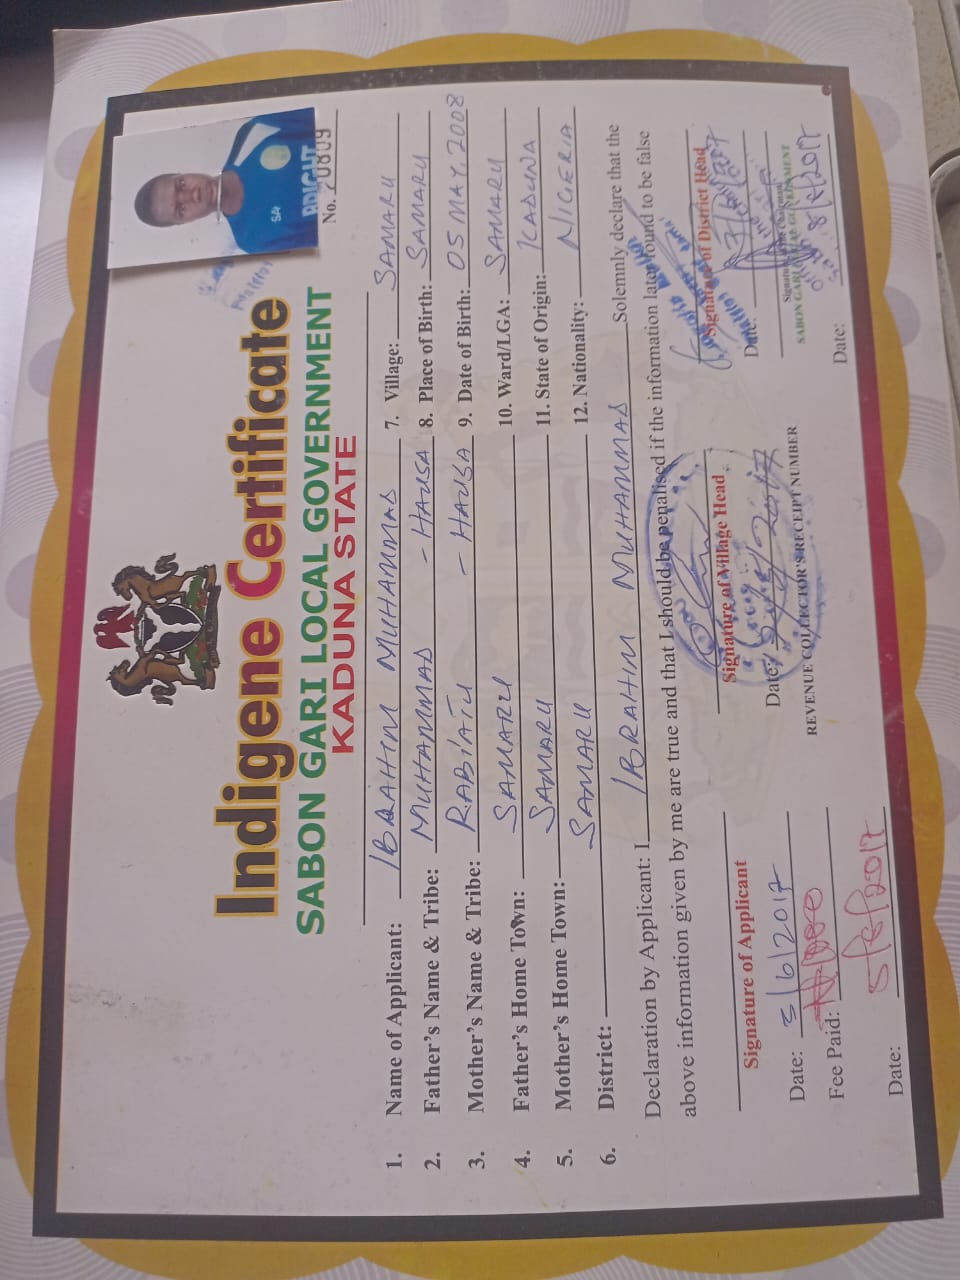 BRIGHT
No. 70809
Indigene Certificate
SABON GARI LOCAL GOVERNMENT
KADUNA STATE
1. Name of Applicant: IBRAHIM MUHAMMAD
2. Father's Name & Tribe: MUHAMMAD - HAUSA
3. Mother's Name & Tribe: RABI'ATU - HAUSA
4. Father's Home Town: SAMARU
5. Mother's Home Town: SAMARU
6. District: SAMARU
7. Village: SAMARU
8. Place of Birth: SAMARU
9. Date of Birth: 05 MAY, 2008
10. Ward/LGA: SAMARU
11. State of Origin: KADUNA
12. Nationality: NIGERIA
Declaration by Applicant: I IBRAHIM MUHAMMAD Solemnly declare that the
above information given by me are true and that I should be penalised if the information later found to be false
Signature of Applicant
Date: 5/6/2017
Fee Paid:
Date: 5/6/2017
Signature of Village Head
Date:
REVENUE COLLECTOR'S RECEIPT NUMBER
Signature of District Head
Date:
SABON GARI LOCAL GOVERNMENT
Date: